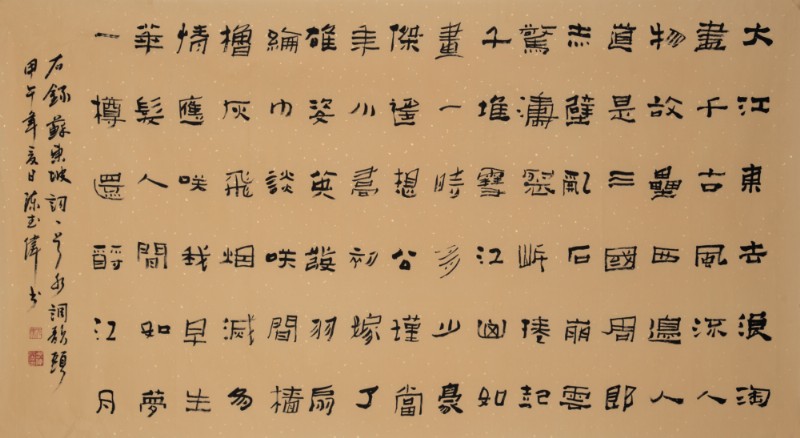 大江東去浪淘
盡千古風流人
物故壘西邊人
道是三國周郎
赤壁亂石崩雲
驚濤裂岸捲起
千堆雪江山如
畫一時多少豪
傑遙想公瑾當
年小喬初嫁了
雄姿英發羽扇
綸巾談咲間檣
櫓灰飛烟滅多
情應咲我早生
華髮人間如夢
一樽還酹江月
右錄蘇東坡詞一首水調歌頭
甲午年夏日陈志偉书